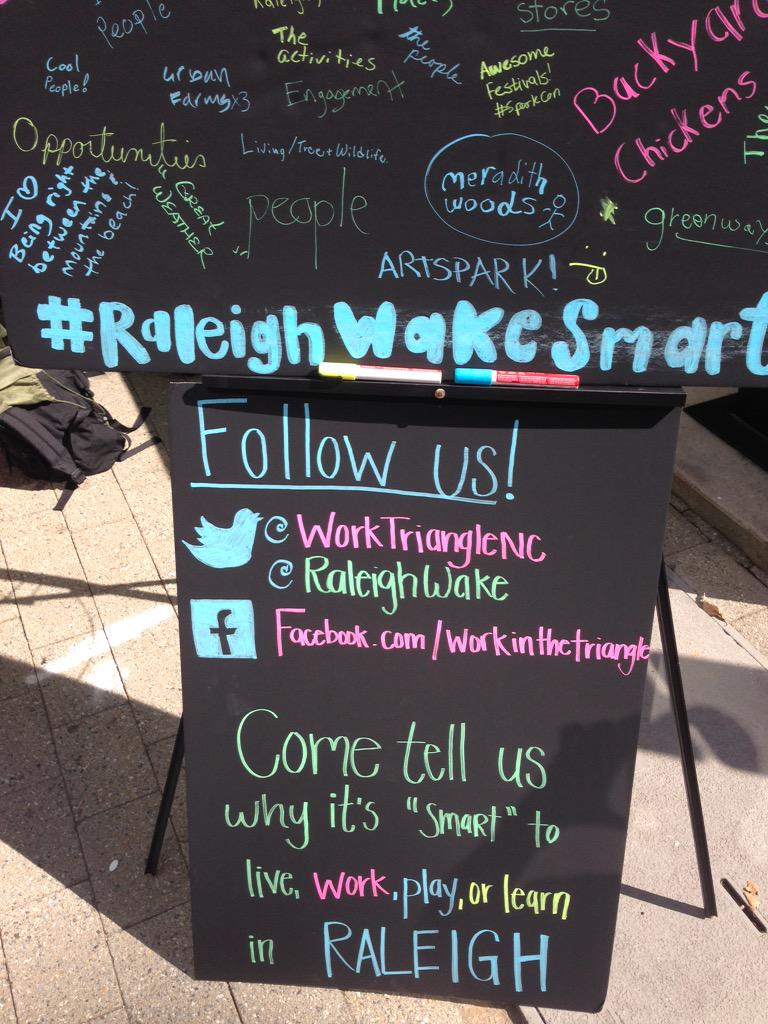 People
stores
Cool
People!
urban
Farms x3
The
activities
Engagement
the
people
Awesome
Festivals!
#SparkCon
Backyard
Chickens
Opportunities
Living/Trees + Wildlife
I ♡
Being right
between the
mountains &
the beach!
GREAT
WEATHER
people
meredith
woods
greenway
ARTSPARK!
#RaleighWakeSmart
Follow us!
@WorkTriangleNC
@RaleighWake
f Facebook.com/workinthetriangle
Come tell us
why it's "smart" to
live, work, play, or learn
in RALEIGH